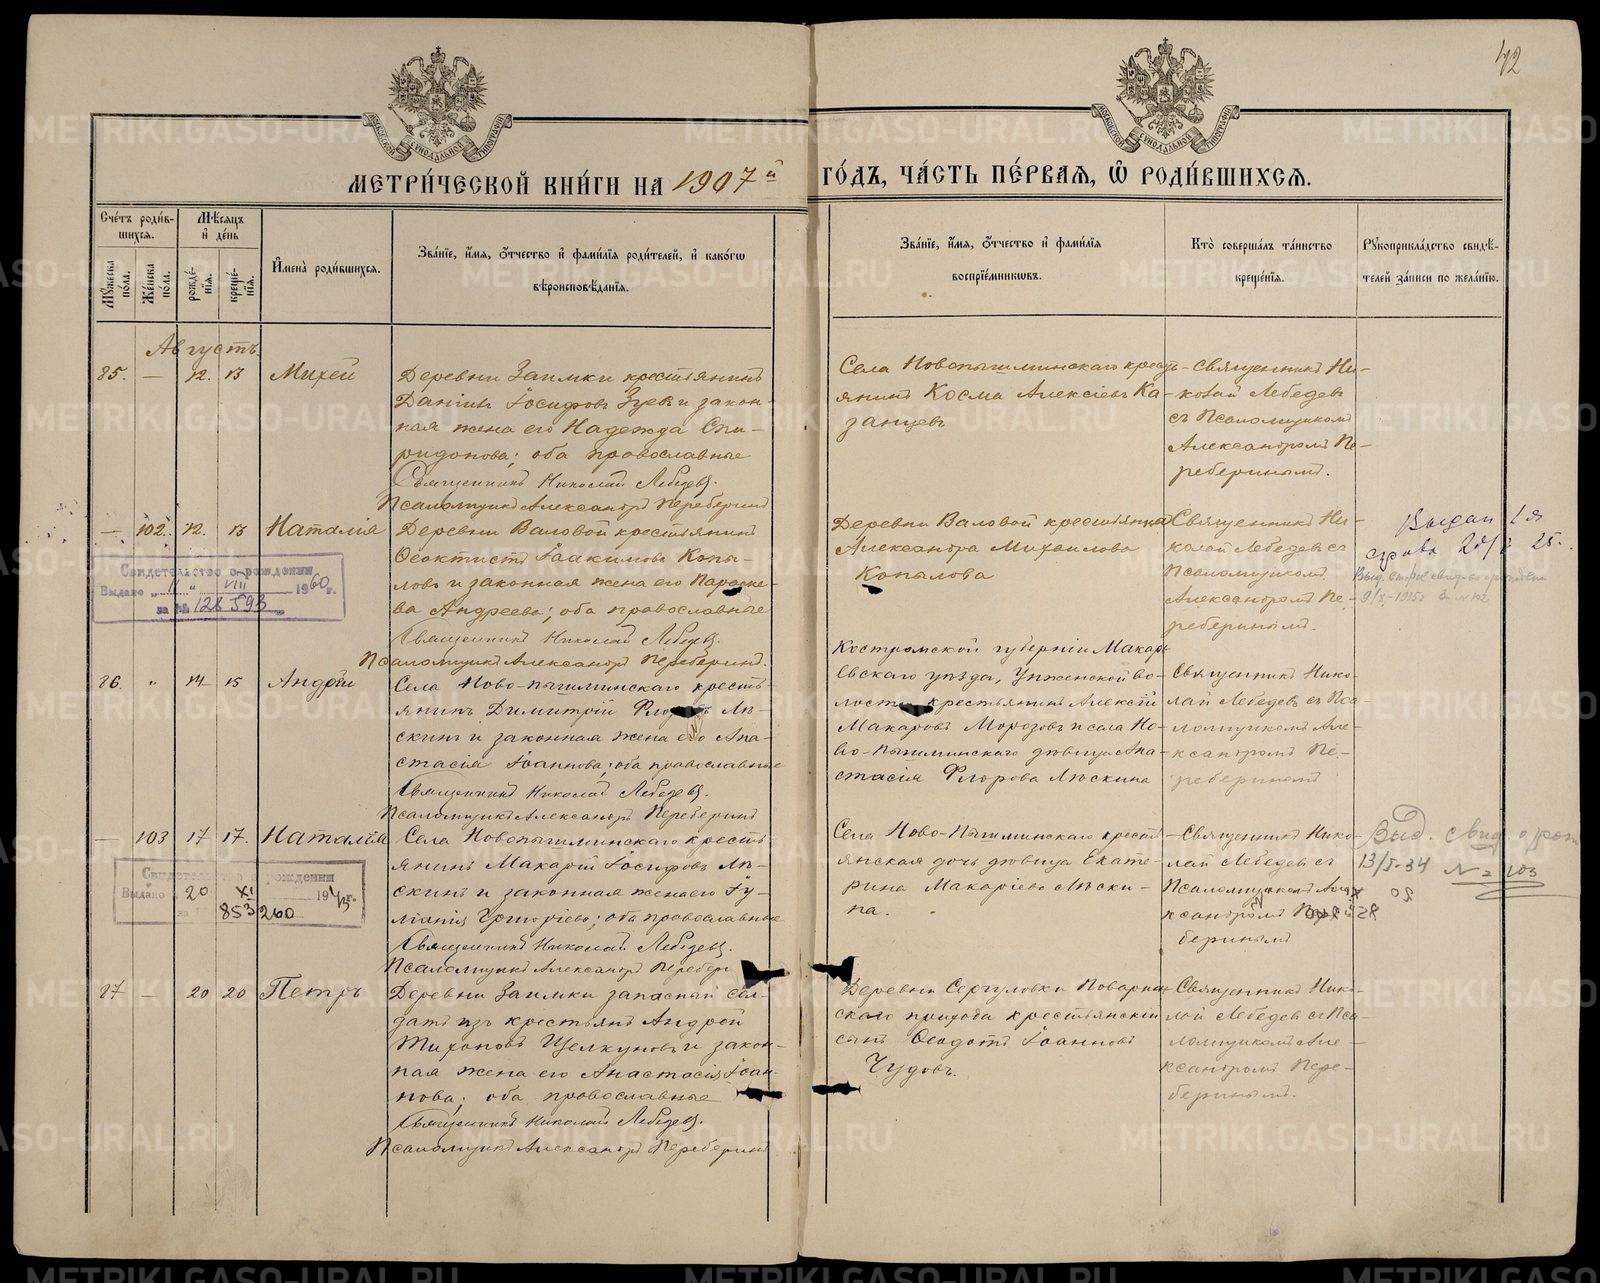 42
МОСКОВСКОЙ СѴНОДАЛЬНОЙ ТИПОГРАФІИ
МОСКОВСКОЙ СѴНОДАЛЬНОЙ ТИПОГРАФІИ
МЕТРИ́ЧЕСКОЙ КНИ́ГИ НА 1907й ГО́ДЪ, ЧА́СТЬ ПЕ́РВАѦ, Ѽ РОДИ́ВШИХСѦ.
Сче́тъ роди́в-
шихсѧ.
Мꙋжеска по́ла.
Же́нска по́ла.
Мѣ́сѧцъ
и҆ де́нь
рожде́-
нїѧ.
креще́-
нїѧ.
И҆мена̀ роди́вшихсѧ.
Зва́нїе, и҆́мѧ, ѻ҆́тчество и҆ фами́лїѧ роди́телей, и҆ како́гѡ
вѣроисповѣ́данїѧ.
Зва́нїе, и҆́мѧ, ѻ҆́тчество и҆ фами́лїѧ
воспрїе́мникѡвъ.
Кто̀ соверша́лъ та́инство
креще́нїѧ.
Рꙋкоприкла́дство свидѣ́-
телей за́писи по жела́нїю.
Августъ
85. — 12. 13 Михей
Деревни Заимки крестьянинъ
Даніилъ Іосифовъ Зуевъ и закон-
ная жена его Надежда Спи-
ридонова; оба православные
Священникъ Николай Лебедевъ.
Псаломщикъ Александръ Переберинъ
Села Новопышминскаго кресть-
янинъ Косма Алексіевъ Ка-
занцевъ
Священникъ Ни-
колай Лебедевъ
съ Псаломщикомъ
Александромъ Пе-
реберинымъ.
— 102. 12. 13 Наталія
Деревни Валовой крестьянинъ
Ѳеоктистъ Іоакимовъ Копы-
ловъ и законная жена его Параске-
ва Андреева; оба православные
Священникъ Николай Лебедевъ.
Псаломщикъ Александръ Переберинъ.
Деревни Валовой крестьянка
Александра Михаилова
Копылова
Священникъ Ни-
колай Лебедевъ съ
Псаломщикомъ
Александромъ Пе-
реберинымъ.
Выдан 1я
справка 25.
Свидетельство о рождении
Выдано „11“ VIII 1960 г.
за № 128593
86. „ 14 15 Андрей
Села Ново-пышминскаго кресть-
янинъ Димитрій Лѣ-
скинъ и законная жена его Ана-
стасія Іоаннова; оба православные
Священникъ Николай Лебедевъ.
Псаломщикъ Александръ Переберинъ
Костромской губерніи Макарь-
евскаго уѣзда, Унженской во-
лости крестьянинъ Алексій
Макаровъ Морозовъ и села Но-
во-пышминскаго дѣвица Ана-
стасія Флорова Лѣскина
Священникъ Нико-
лай Лебедевъ съ Пса-
ломщикомъ Але-
ксандромъ Пе-
реберинымъ
— 103 17 17. Наталія
Села Новопышминскаго кресть-
янинъ Макарій Іосифовъ Лѣ-
скинъ и законная жена его Іу-
ліанія Григоріева; оба православные
Священникъ Николай Лебедевъ.
Псаломщикъ Александръ Перебери
Села Ново-Пышминскаго кресть-
янская дочь дѣвица Екате-
рина Макаріева Лѣски-
на.
Священникъ Нико-
лай Лебедевъ съ
Псаломщикомъ Але-
ксандромъ Пере-
беринымъ
Выд. свид. о рож
13/I-34 № 103
Свидетельство о рождении
Выдано 20 XI 19 г.
853260
87 — 20 20 Петръ
Деревни Заимки запасный сол-
датъ изъ крестьянъ Андрей
Тихоновъ Щелкуновъ и закон-
ная жена его Анастасія Іоан-
нова; оба православные
Священникъ Николай Лебедевъ.
Псаломщикъ Александръ Переберинъ
Деревни Сергуловки Поварен-
скаго прихода крестьянскій
сынъ Ѳеодотъ Іоанновъ
Чудовъ.
Священникъ Нико-
лай Лебедевъ съ Пса-
ломщикомъ Але-
ксандромъ Пере-
беринымъ.
METRIKI.GASO-URAL.RU